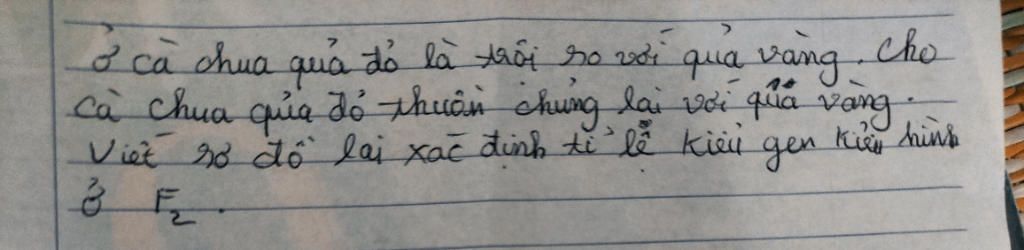 ở cà chua quả đỏ là trội so với quả vàng. Cho
cà chua quả đỏ thuần chủng lai với quả vàng.
Viết sơ đồ lai xác định tỉ lệ kiểu gen kiểu hình
ở F₂.